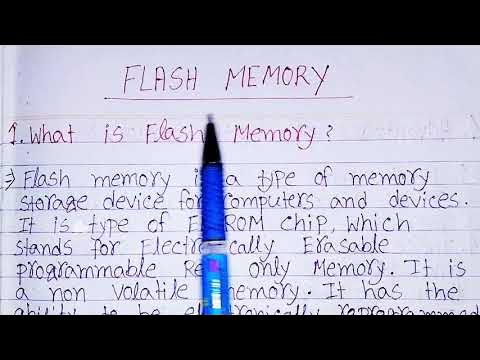 FLASH MEMORY
1. What is Flash Memory?
⇒ Flash memory is a type of memory
storage device for computers and devices.
It is type of EEPROM chip, which
stands for Electrically Erasable
programmable Read only Memory. It is
a non volatile memory. It has the
ability to be electronically reprogrammed